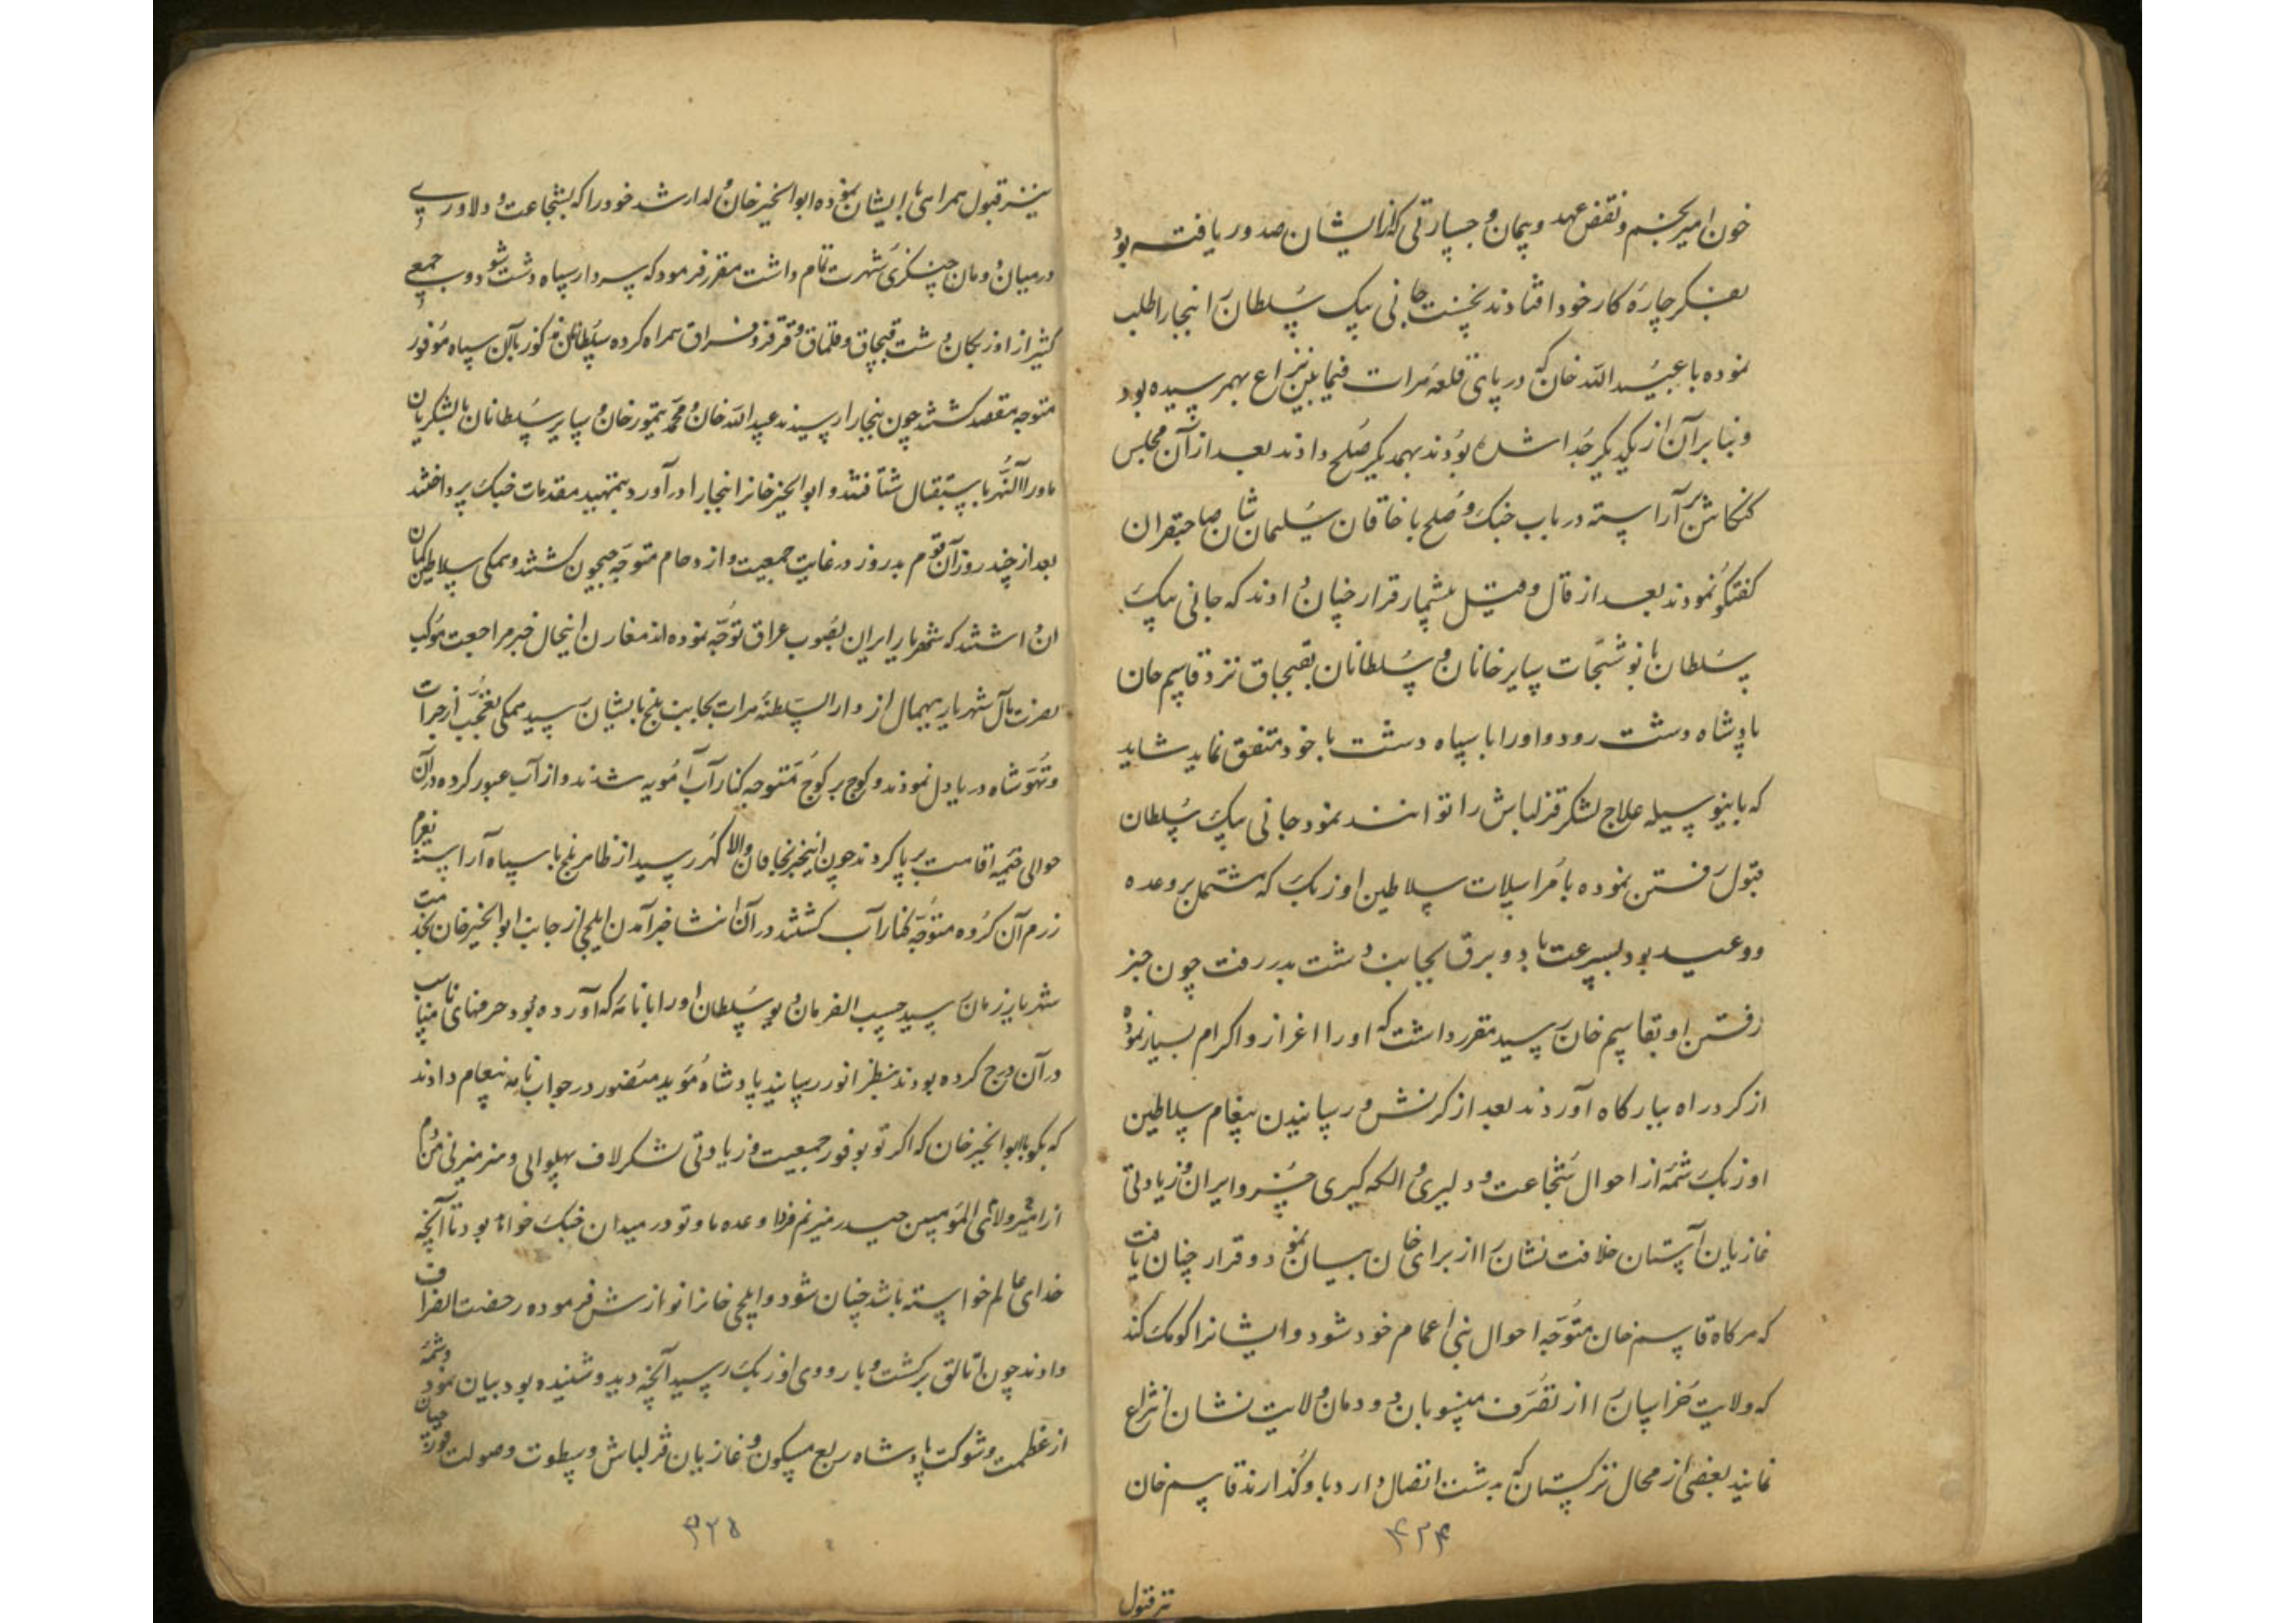 خون امیر نجم و نقض عهد و پیمان و جسارتی که از ایشان صدور یافته بود
بفکر چاره کار خود افتادند نخست جانی بیک سلطان را ببخارا طلب
نموده با عبید الله خان که در پای قلعه هرات فیمابین نزاع بهمرسیده بود
و بنا بر آن از یکدیگر جدا شده بودند بهمدیگر صلح دادند بعد از آن مجلس
کنکاش بر آراسته در باب جنک و صلح با خاقان سلیمان شان صاحبقران
کفتکو نمودند بعد از قال و قیل بیشمار قرار چنان دادند که جانی بیک
سلطان با نوشتجات سایر خانان و سلطانان بقبچاق نزد قاسم خان
پادشاه دشت رود و او را با سپاه دشت با خود متفق نماید شاید
که باینوسیله علاج لشکر قزلباش را توانند نمود جانی بیک سلطان
قبول رفتن نموده با مراسلات سلاطین اوزبک که مشتمل بر وعده
و وعید بود بسرعت باد و برق بجانب دشت بدر رفت چون خبر
رفتن او بقاسم خان رسید مقرر داشت که او را اعزاز و اکرام بسیار نموده
از کرد راه ببارکاه آوردند بعد از کرنش و رسانیدن پیغام سلاطین
اوزبک شمه از احوال شجاعت و دلیری و الکه کیری خسرو ایران و زیادتی
غازیان آستان خلافت نشان را از برای خان بیان نمود و قرار چنان یافت
که هرکاه قاسم خان متوجه احوال بنی اعمام خود شود و ایشانرا کومک کند
که ولایت خراسان را از تصرف منسوبان دودمان ولایت نشان انتزاع
نمایند بعضی از محال ترکستان که بدشت اتصال دارد باو گذارند قاسم خان
نیز قبول
۴۲۴
نیز قبول همراهی با ایشان نموده ابوالخیر خان ولد ارشد خود را که بشجاعت و دلاوری
در میان دودمان چنکزی شهرت تمام داشت مقرر فرمود که سردار سپاه دشت شود و جمعی
کثیر از اوزبکان دشت قبچاق و قلماق و قرقز و قزاق همراه کرده سلطانان مذکور با آن سپاه موفور
متوجه مقصد کشتند چون ببخارا رسیدند عبید الله خان و محمد تیمور خان و سایر سلطانان با لشکریان
ماوراالنهر باستقبال شتافتند و ابوالخیر خانرا ببخارا در آورده بتمهید مقدمات جنک پرداختند
بعد از چند روز آن قوم بد روز در غایت جمعیت و ازدحام متوجه جیحون کشتند و همکی سلاطین کمان
آن داشتند که شهریار ایران بصوب عراق توجه نموده اند مقارن اینحال خبر مراجعت موکب
نصرت مآل شهریار بیهمال از دار السلطنه هرات بجانب بلخ بایشان رسید همکی تعجب از جرات
و تهور شاه دریا دل نمودند و کوچ بر کوچ متوجه کنار آب آمویه شدند و از آب عبور کرده در آن
حوالی خیمه اقامت بر پا کردند چون اینخبر بخاقان والا کهر رسید از ظاهر بلخ با سپاه آراسته بعزم
رزم آن کروه متوجه کنار آب کشتند در آن اثنا خبر آمدن ایلچی از جانب ابوالخیر خان بخدمت
شهریار زمان رسید حسب الفرمان دیو سلطان او را با نامه که آورده بود و حرفهای نامناسب
در آن درج کرده بودند بنظر انور رسانید پادشاه مؤید منصور در جواب نامه پیغام دادند
که بکو بابوالخیر خان که اکر تو بوفور جمعیت و زیادتی لشکر لاف پهلوانی و هنر میزنی من دم
از مهر ولای امیر المؤمنین حیدر میزنم فردا وعده ما و تو در میدان جنک خواهد بود تا آنچه
خدای عالم خواسته باشد چنان شود و ایلچی خانرا نوازش فرموده رخصت انصراف
دادند چون اتالق برکشت و باردوی اوزبک رسید آنچه دیده و شنیده بود بیان نمود و شمه
از عظمت و شوکت پادشاه ربع مسکون و غازیان قزلباش و سطوت و صولت
۴۲۵